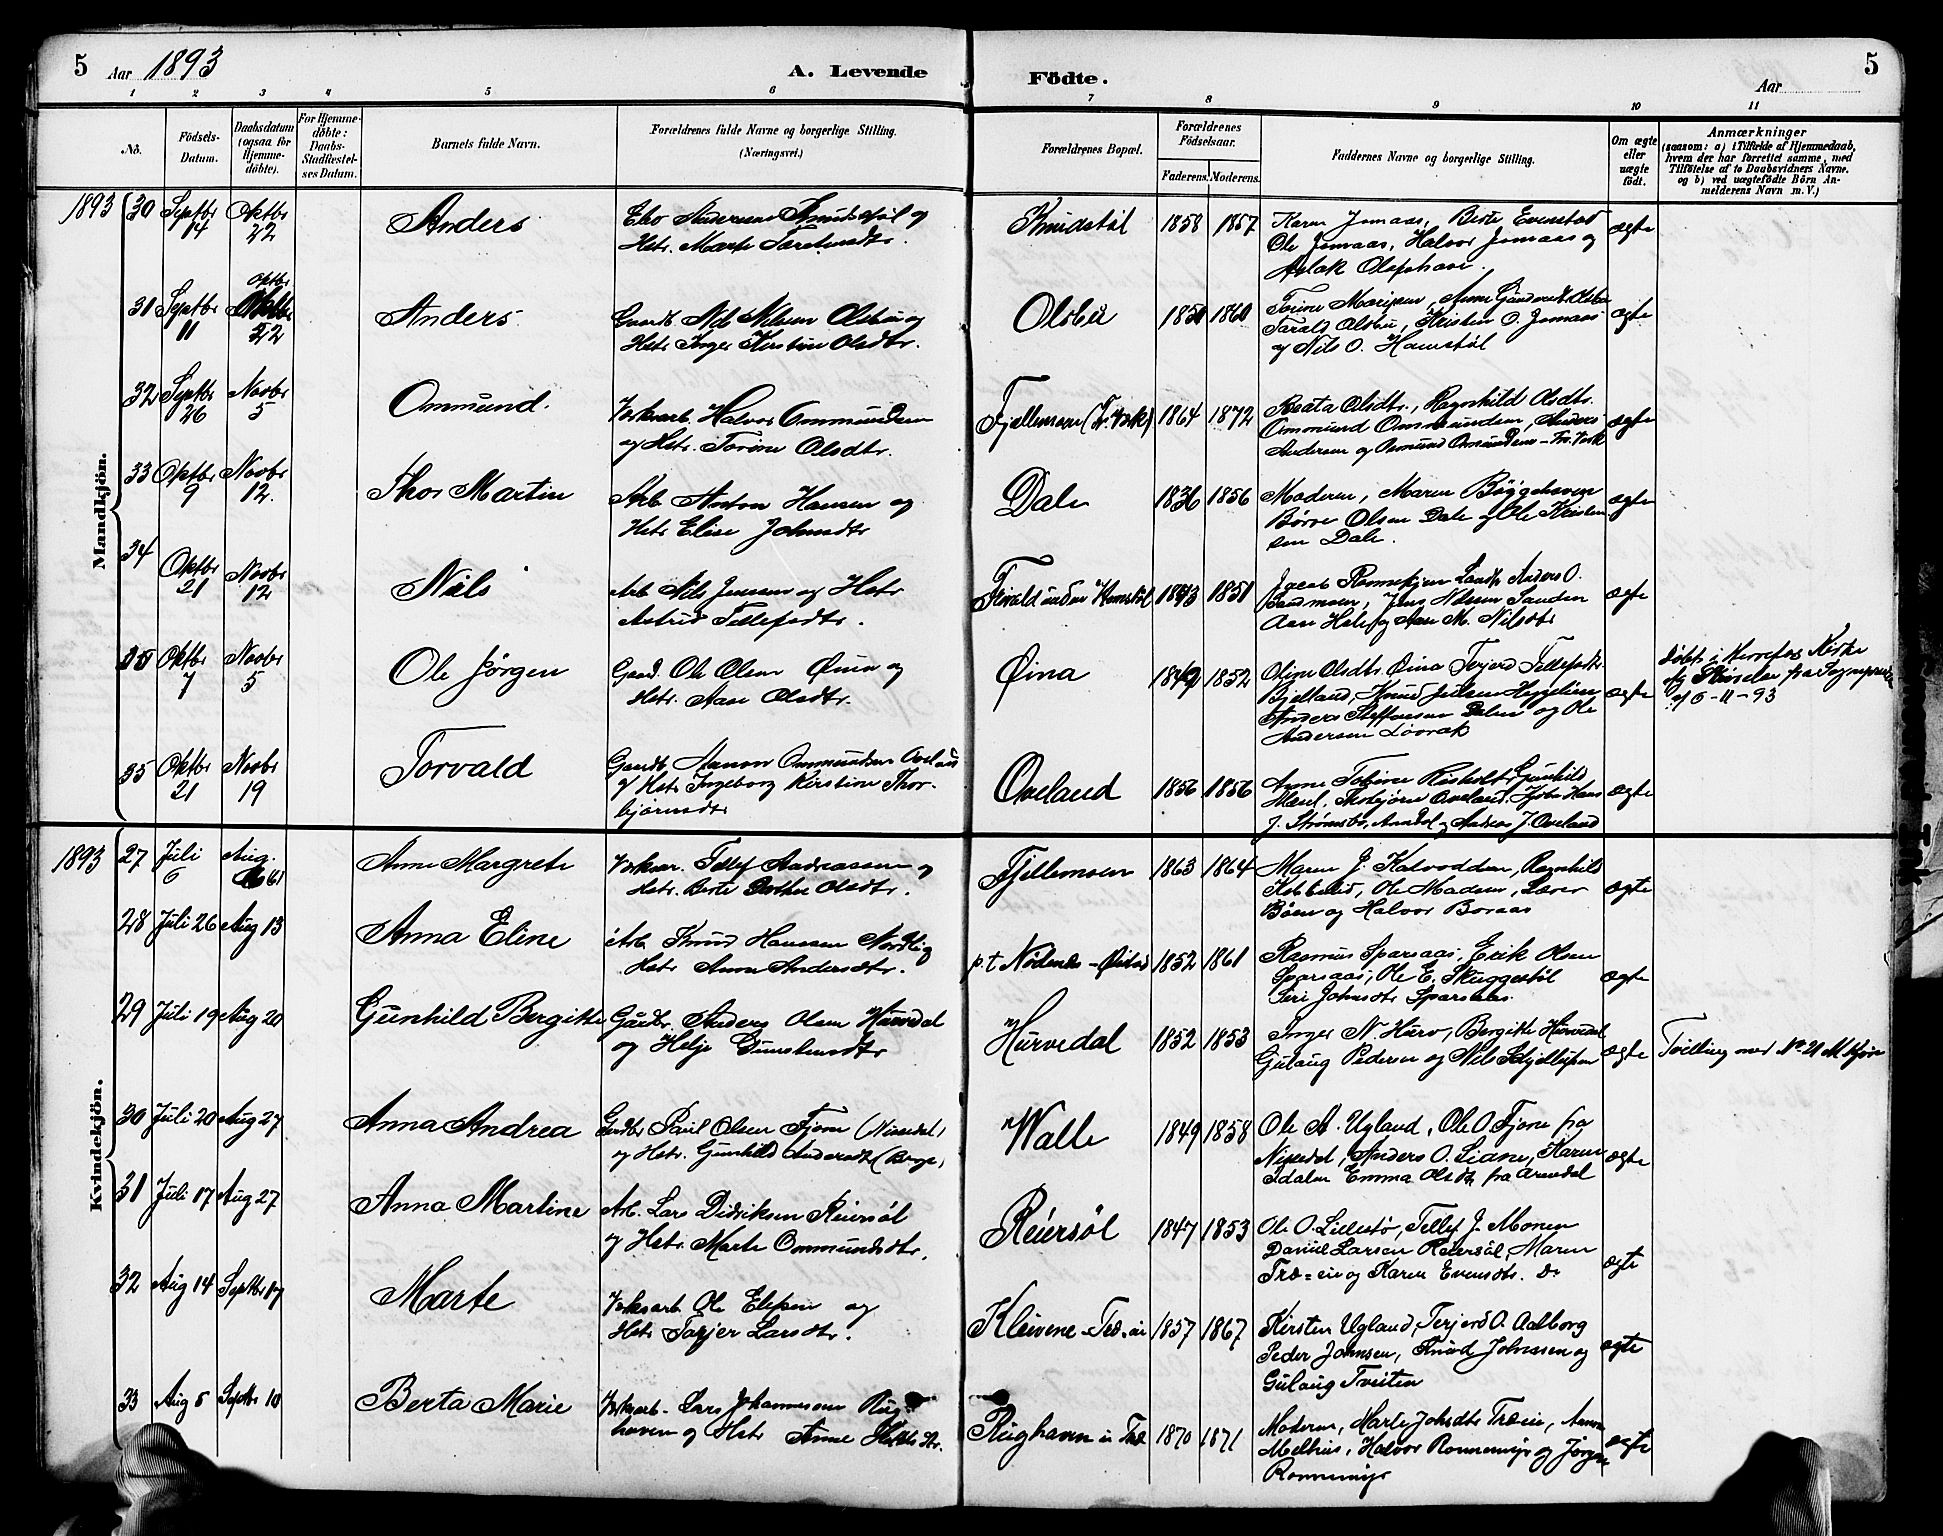 5 Aar 1893 A. Levende Födte. Aar 5
1 2 3 4 5 6 7 8 9 10 11
Nö. Födsels-Datum. Daabsdatum (ogsaa for Hjemmedöbte). For Hjemmedöbte: Daabs-Stadfæstelses Datum. Barnets fulde Navn. Forældrenes fulde Navne og borgerlige Stilling. (Næringsvei.) Forældrenes Bopæl. Forældrenes Födselsaar. Faderens. Moderens. Faddernes Navne og borgerlige Stilling. Om ægte eller uægte födt. Anmærkninger (saasom: a) i Tilfælde af Hjemmedaab, hvem der har forrettet samme, med Tilföielse af to Daabsvidners Navne. og b) ved uægtefödte Börn Anmelderens Navn m. V.)
Mandkjön.
1893 30 Septbr 14 Oktbr 22 Anders
Hstr. Marte
Knudstøl 1858 1857
Karen Jomaas, Berte Evenstad
Ole Jomaas, Halvor Jomaas og
Aslak
ægte
31 Septbr 11 Oktbr 22 Anders
Gaardb. Nils Nilsen Olsbu og
Hstr. Inger Kirstine Olsdtr.
Olsbu 1850 1860
Tarald Olsbu, Kristen O. Jomaas
og Nils O. Hamstøl
ægte
32 Septbr 26 Novbr 5 Ommund.
Halvor Ommundsen
og Hstr. Torine Olsdtr.
Fjellemoen 1864 1872
Beata Olsdtr., Ragnhild Olsdtr.
Ommund Ommundsen, Anders
Andersen og Osmund Omundsen
ægte
33 Oktbr 9 Novbr 12. Thor Martin
Arb Anton Hansen og
Hstr Elise Johnsdtr
Dale 1836 1856
Moderen, Maren Bøggehaven
Børre Olsen Dale og Ole Kristen
sen Dale.
ægte
34 Oktbr 21 Novbr 12 Nils
Arb Nils Jensen og Hstr
Astrid Tellefsdtr.
under Hamstøl 1843 1851
Jens Nilsen Sanden
M. Nilsdtr
ægte
35 Oktbr 7 Novbr 5 Ole Jørgen
Gaard. Ole Olsen Øina og
Hstr. Aase Olsdtr.
Øina 1849 1852
Oline Olsdtr. Øina Terjerd Tellefsdtr.
Bjelland, Knud Jensen
Anders Steffensen Dalen og Ole
Andersen Løvrak
ægte
døbt i Herrefos Kirke
6-11-93
35 Oktbr 21 Novbr 19 Torvald
Gaardb. Aanon Ommundsen Oveland
og Hstr. Ingeborg Kirstine Thor-
bjørnsdtr
Oveland 1856 1856
Oveland
J. Strømsbo, Arendal og Andreas J. Oveland
ægte
Kvindekjön.
1893 27 Juli 6 Aug. 6 Anne Margrete
Tellef Andreassen og
Hstr. Berte Dorthea Olsdtr.
Fjellemoen 1863 1864
Maren J. Kalvodden, Ragnhild
Ole Madsen, Lærer
Bøen og Halvor Boraas
ægte
28 Juli 26 Aug 13 Anna Eline
Arb. Knud Hansen Nordlig
Hstr Anne Andersdtr.
p.t Nødenes-Øiestad 1852 1861
Rasmus Sparsaas, Erik Olsen
Sparsaas, Ole E. Skuggestøl
Siri Johnsdtr Sparsaas.
ægte
29 Juli 19 Aug 20 Gunhild Bergitte
Gaardbr. Anders Olsen Hurvedal
og Helje Gunstensdtr
Hurvedal 1852 1853
Inger N. Hurv, Bergitte Hurvedal
Gulaug Pedersen og Nils
ægte
Tvilling med No 21 M. Kjøn
30 Juli 20 Aug 27 Anna Andrea
Gardbr Paul Olsen Fjone (Nissedal)
og Hstr. Gunhild Andersdtr (Berge)
Walle 1849 1858
Ole A. Ugland, Ole O. Fjone fra
Nissedal, Anders O. Liane, Karen
Idalen Emma Olsdtr fra Arendal
ægte
31 Juli 17 Aug 27 Anna Martine
Arb. Lars Didriksen Reiersøl
og Hstr. Marte Ommundsdtr.
Reiersøl 1847 1853
Ole O. Lillestø, Tellef J. Monen
Daniel Larsen Reiersøl, Maren
Træ-ei og Karen Evensdtr. Do
ægte
32 Aug 14 Septbr 17 Marte
Vrksarb Ole Elefsen og
Hstr Tarjer Larsdtr.
Kleivene-Træ-ei 1857 1867
Kirsten Ugland, Terjerd O. Aalborg
Peder Johnsen, Knud Johnssen og
Gulaug Tveiten
ægte
33 Aug 5 Septbr 10 Berta Marie
Vrksarb. Lars Johannesen Rug-
haven og Hstr Anne
Rughaven u Træ 1870 1871
Moderen, Marte Johsdtr Træei, Anne
Melhus, Halvor Ronnemyr og Jørgen
Ronnemyr
ægte